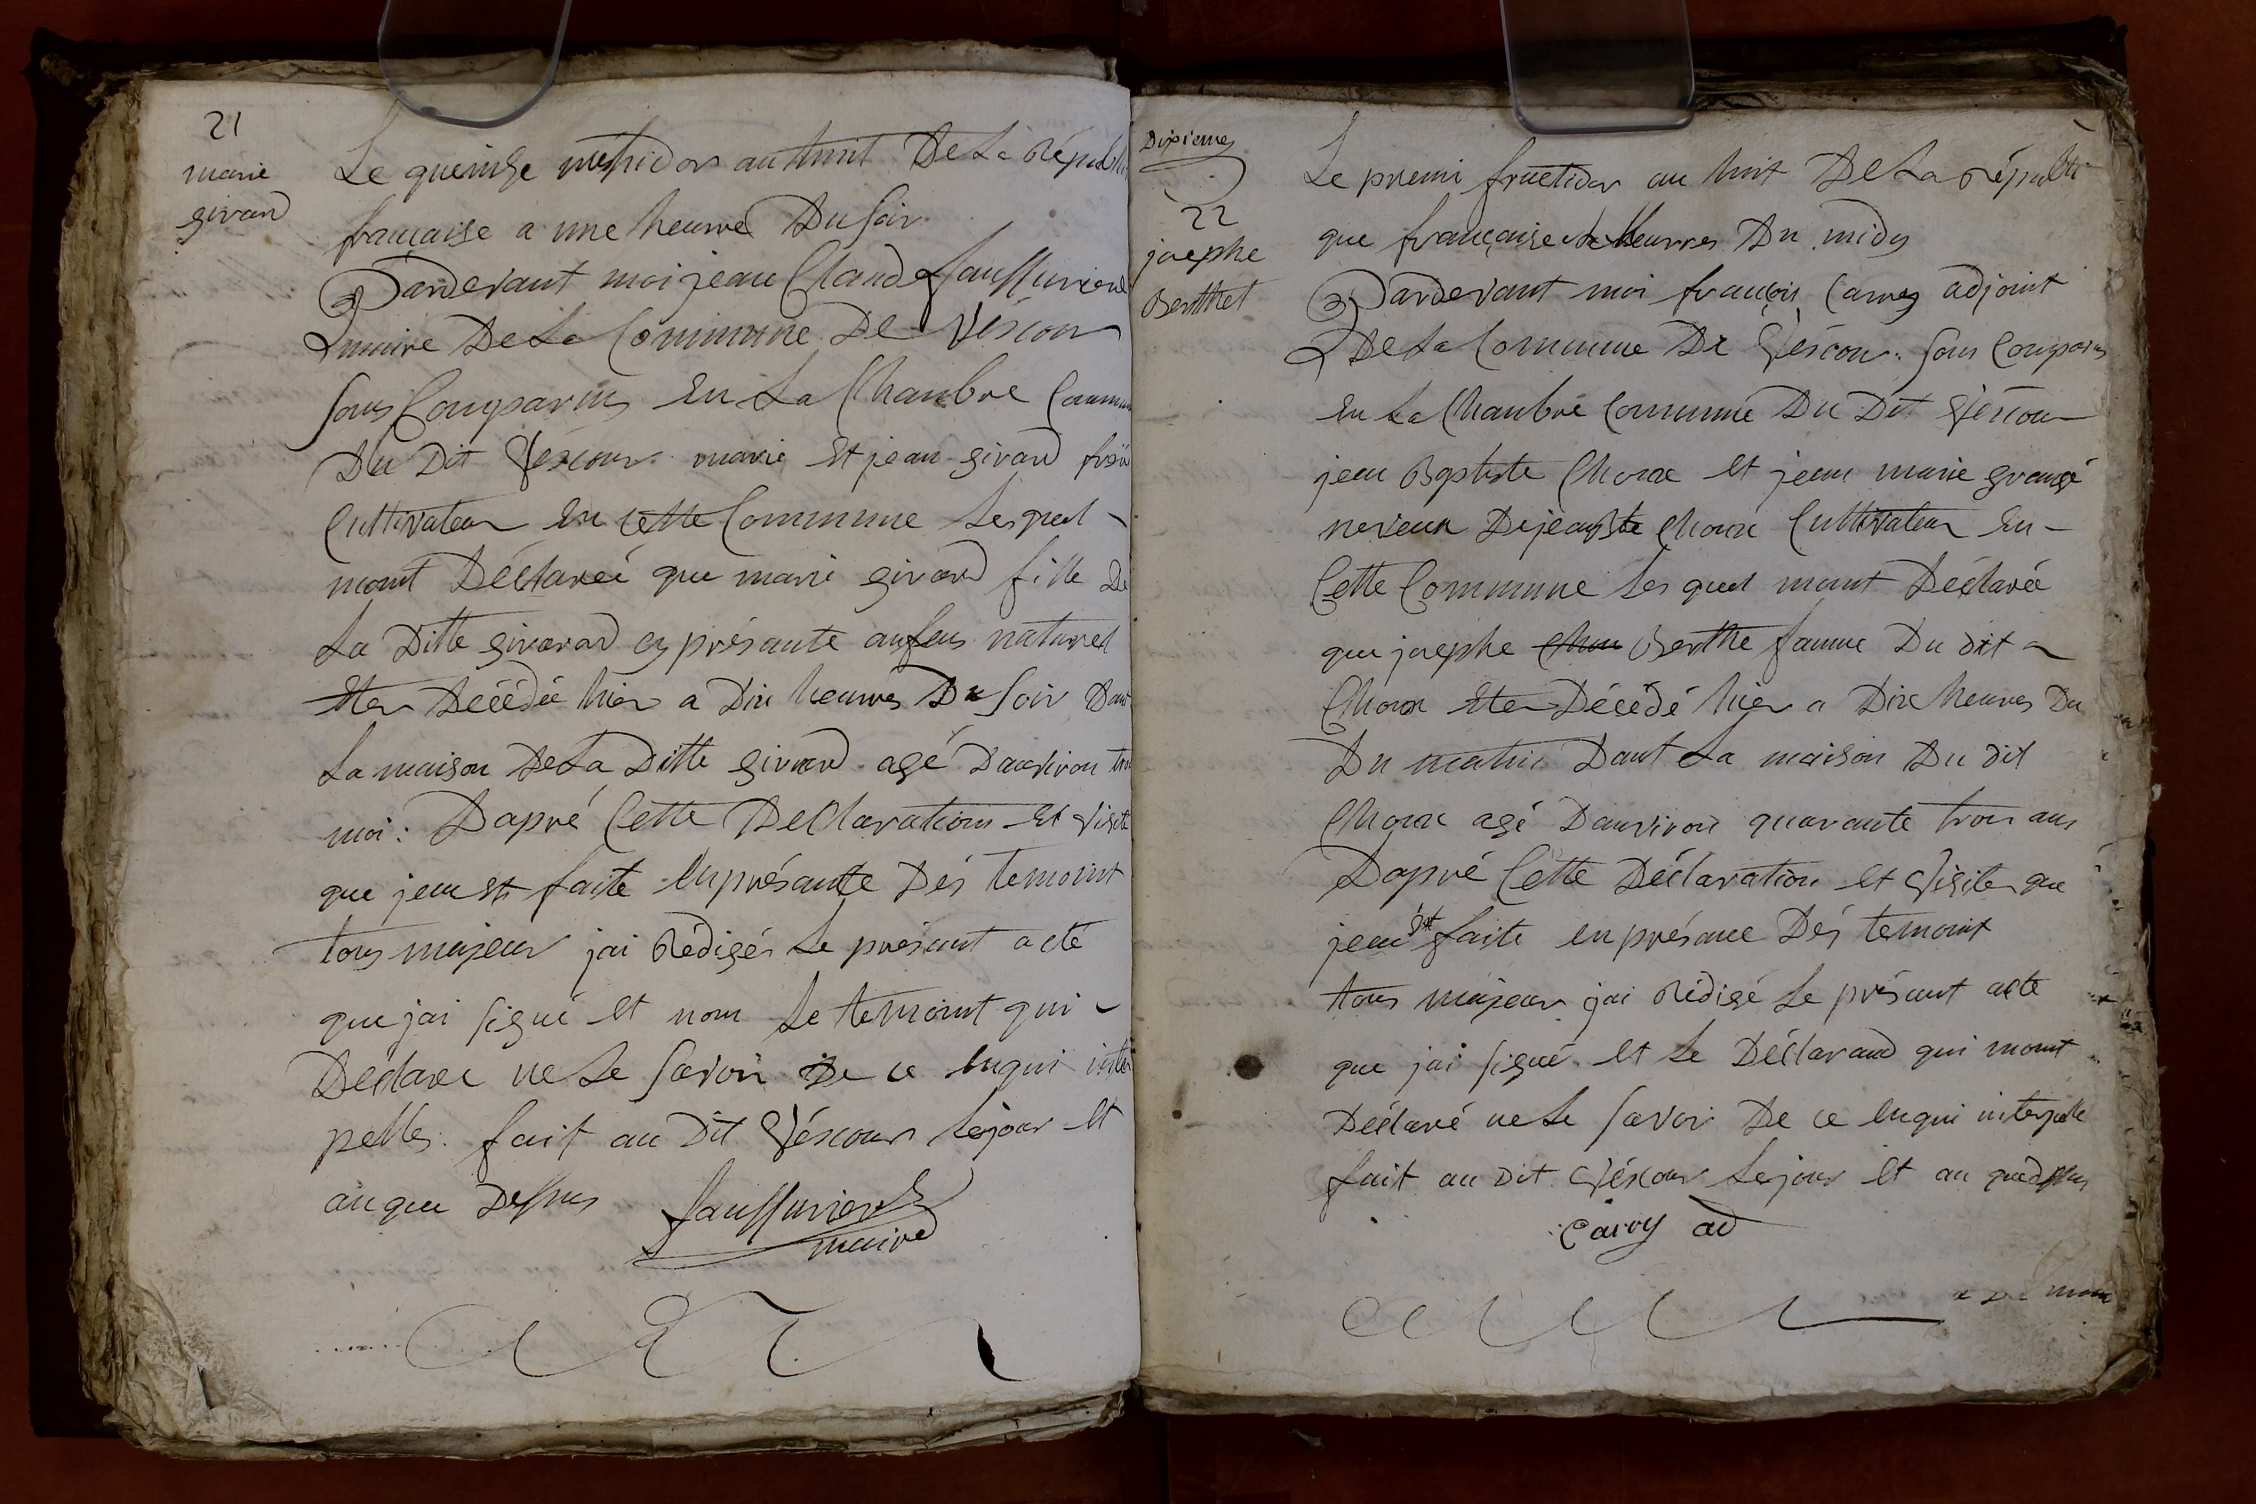 21
marie
girard
Le queinze mesidor an huit De La Répub
française a une heurre Du Soir
Pardevant moi jean Claud Jauffurierd
maire De La Commune De Vescour
Sous Comparus En La Chanbre Commun
Du Dit Vescour marie Et jean girard
Cultivateur En cette Commune Lesquel
mont Déclareé que marie girard fille De
La Ditte girarard cy présante
naturel
Eter Décédée hier a Dix heurres Du Soir Dant
La maison De La Ditte girard agé Danviron
moi : Dapré Cette Declaration Et Visite
que jeu Et faite En présante Dés temoint
tous majeur jai Rédigér Le présant acte
que jai signé Et nom Le temoint qui
Déclare ne Le Savoir De ce Enqui inter
pellé. fait au Dit Véscour Lejour Et
an que Dessus Jauffurierd
maire
Dixieme
22
josephe
Berthet
Le premi fructidor an huit De La républi
que française heurres Du midy
Pardevant moi françois Carrey adjoint
De La Commune De Véscour. Sous Comparus
En La Chanbre Commune Du Dit Véscour
jean Baptiste Choux Et jean marie grangé
neveux De jean Bte Choux Cultivateur En
Cette Commune Les quel mont Déclarée
que josephe Chou Berthe famme Du dit
Choux Eter Décédé hier a Dix heures Du
Du matin Dant La maison Du dit
Choux agé Danviron quarante trois ans
Dapré Cette Déclaration Et Visite que
jeu Et faite en présance Dés temoint
tous majeur jai Rédigé Le présant acte
que jai signé Et Le Déclarand qui mont
Déclaré ne Le Savoir De ce Enqui interpellé
fait au Dit Véscour Lejour Et an que dessus
Carrey ad